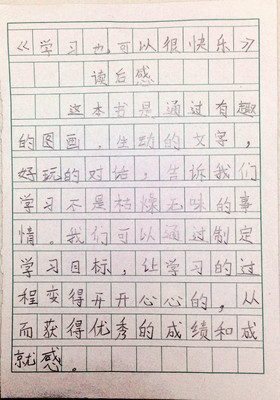 《学习也可以很快乐》
读后感
这本书是通过有趣
的图画，生动的文字，
好玩的对话，告诉我们
学习不是枯燥无味的事
情。我们可以通过制定
学习目标，让学习的过
程变得开开心心的，从
而获得优秀的成绩和成
就感。